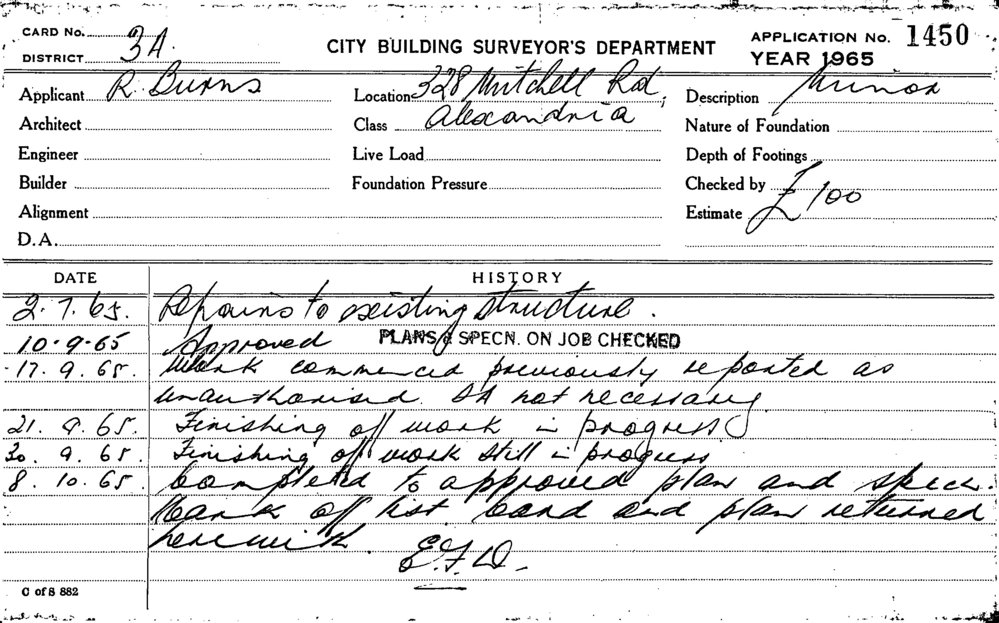 CARD No.
DISTRICT 3A.
CITY BUILDING SURVEYOR'S DEPARTMENT
APPLICATION No. 1450
YEAR 1965
Applicant R Burns
Location 328 Mitchell Rd,
Description Minor
Architect
Class Alexandria
Nature of Foundation
Engineer
Live Load
Depth of Footings
Builder
Foundation Pressure
Checked by
Alignment
Estimate £100
D.A.
DATE HISTORY
2.7.65. Repairs to existing structure.
10.9.65 Approved PLANS & SPECN. ON JOB CHECKED
17.9.65. Work commenced previously reported as
unauthorised. not necessary
21.9.65. Finishing off work in progress
30.9.65. Finishing off work still in progress
8.10.65. Completed to approved plan and specn.
Mark off list. Card and plan returned
herewith. E.F.D.
C of S 882